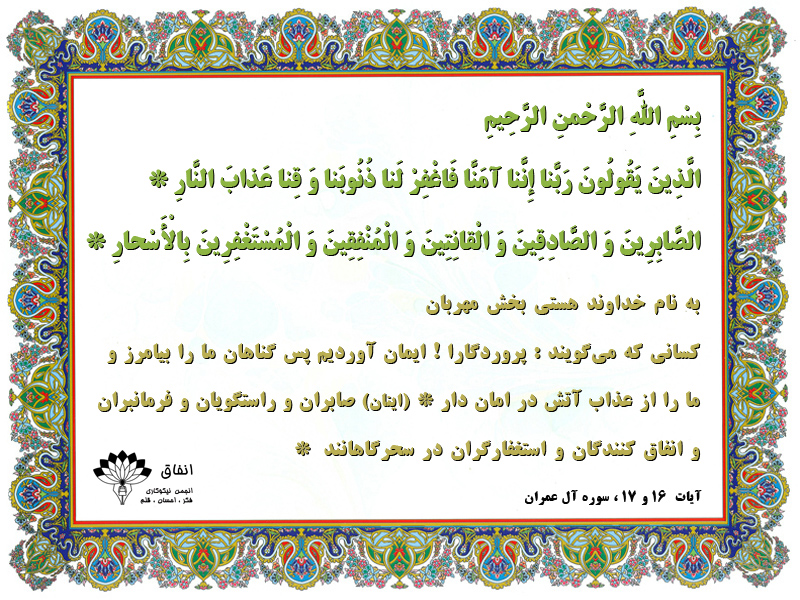 بِسْمِ اللَّهِ الرَّحْمنِ الرَّحِيمِ
الَّذِينَ يَقُولُونَ رَبَّنا إِنَّنا آمَنَّا فَاغْفِرْ لَنا ذُنُوبَنا وَ قِنا عَذابَ النَّارِ *
الصَّابِرِينَ وَ الصَّادِقِينَ وَ الْقانِتِينَ وَ الْمُنْفِقِينَ وَ الْمُسْتَغْفِرِينَ بِالْأَسْحارِ *
به نام خداوند هستی بخش مهربان
کسانی که می‌گویند : پروردگارا ! ایمان آوردیم پس گناهان ما را بیامرز و
ما را از عذاب آتش در امان دار * (اینان) صابران و راستگویان و فرمانبران
و انفاق کنندگان و استغفارگران در سحرگاهانند *
آیات ۱۶ و ۱۷ ، سوره آل عمران
انفاق
انجمن نیکوکاری
فکر ، احسان ، قلم